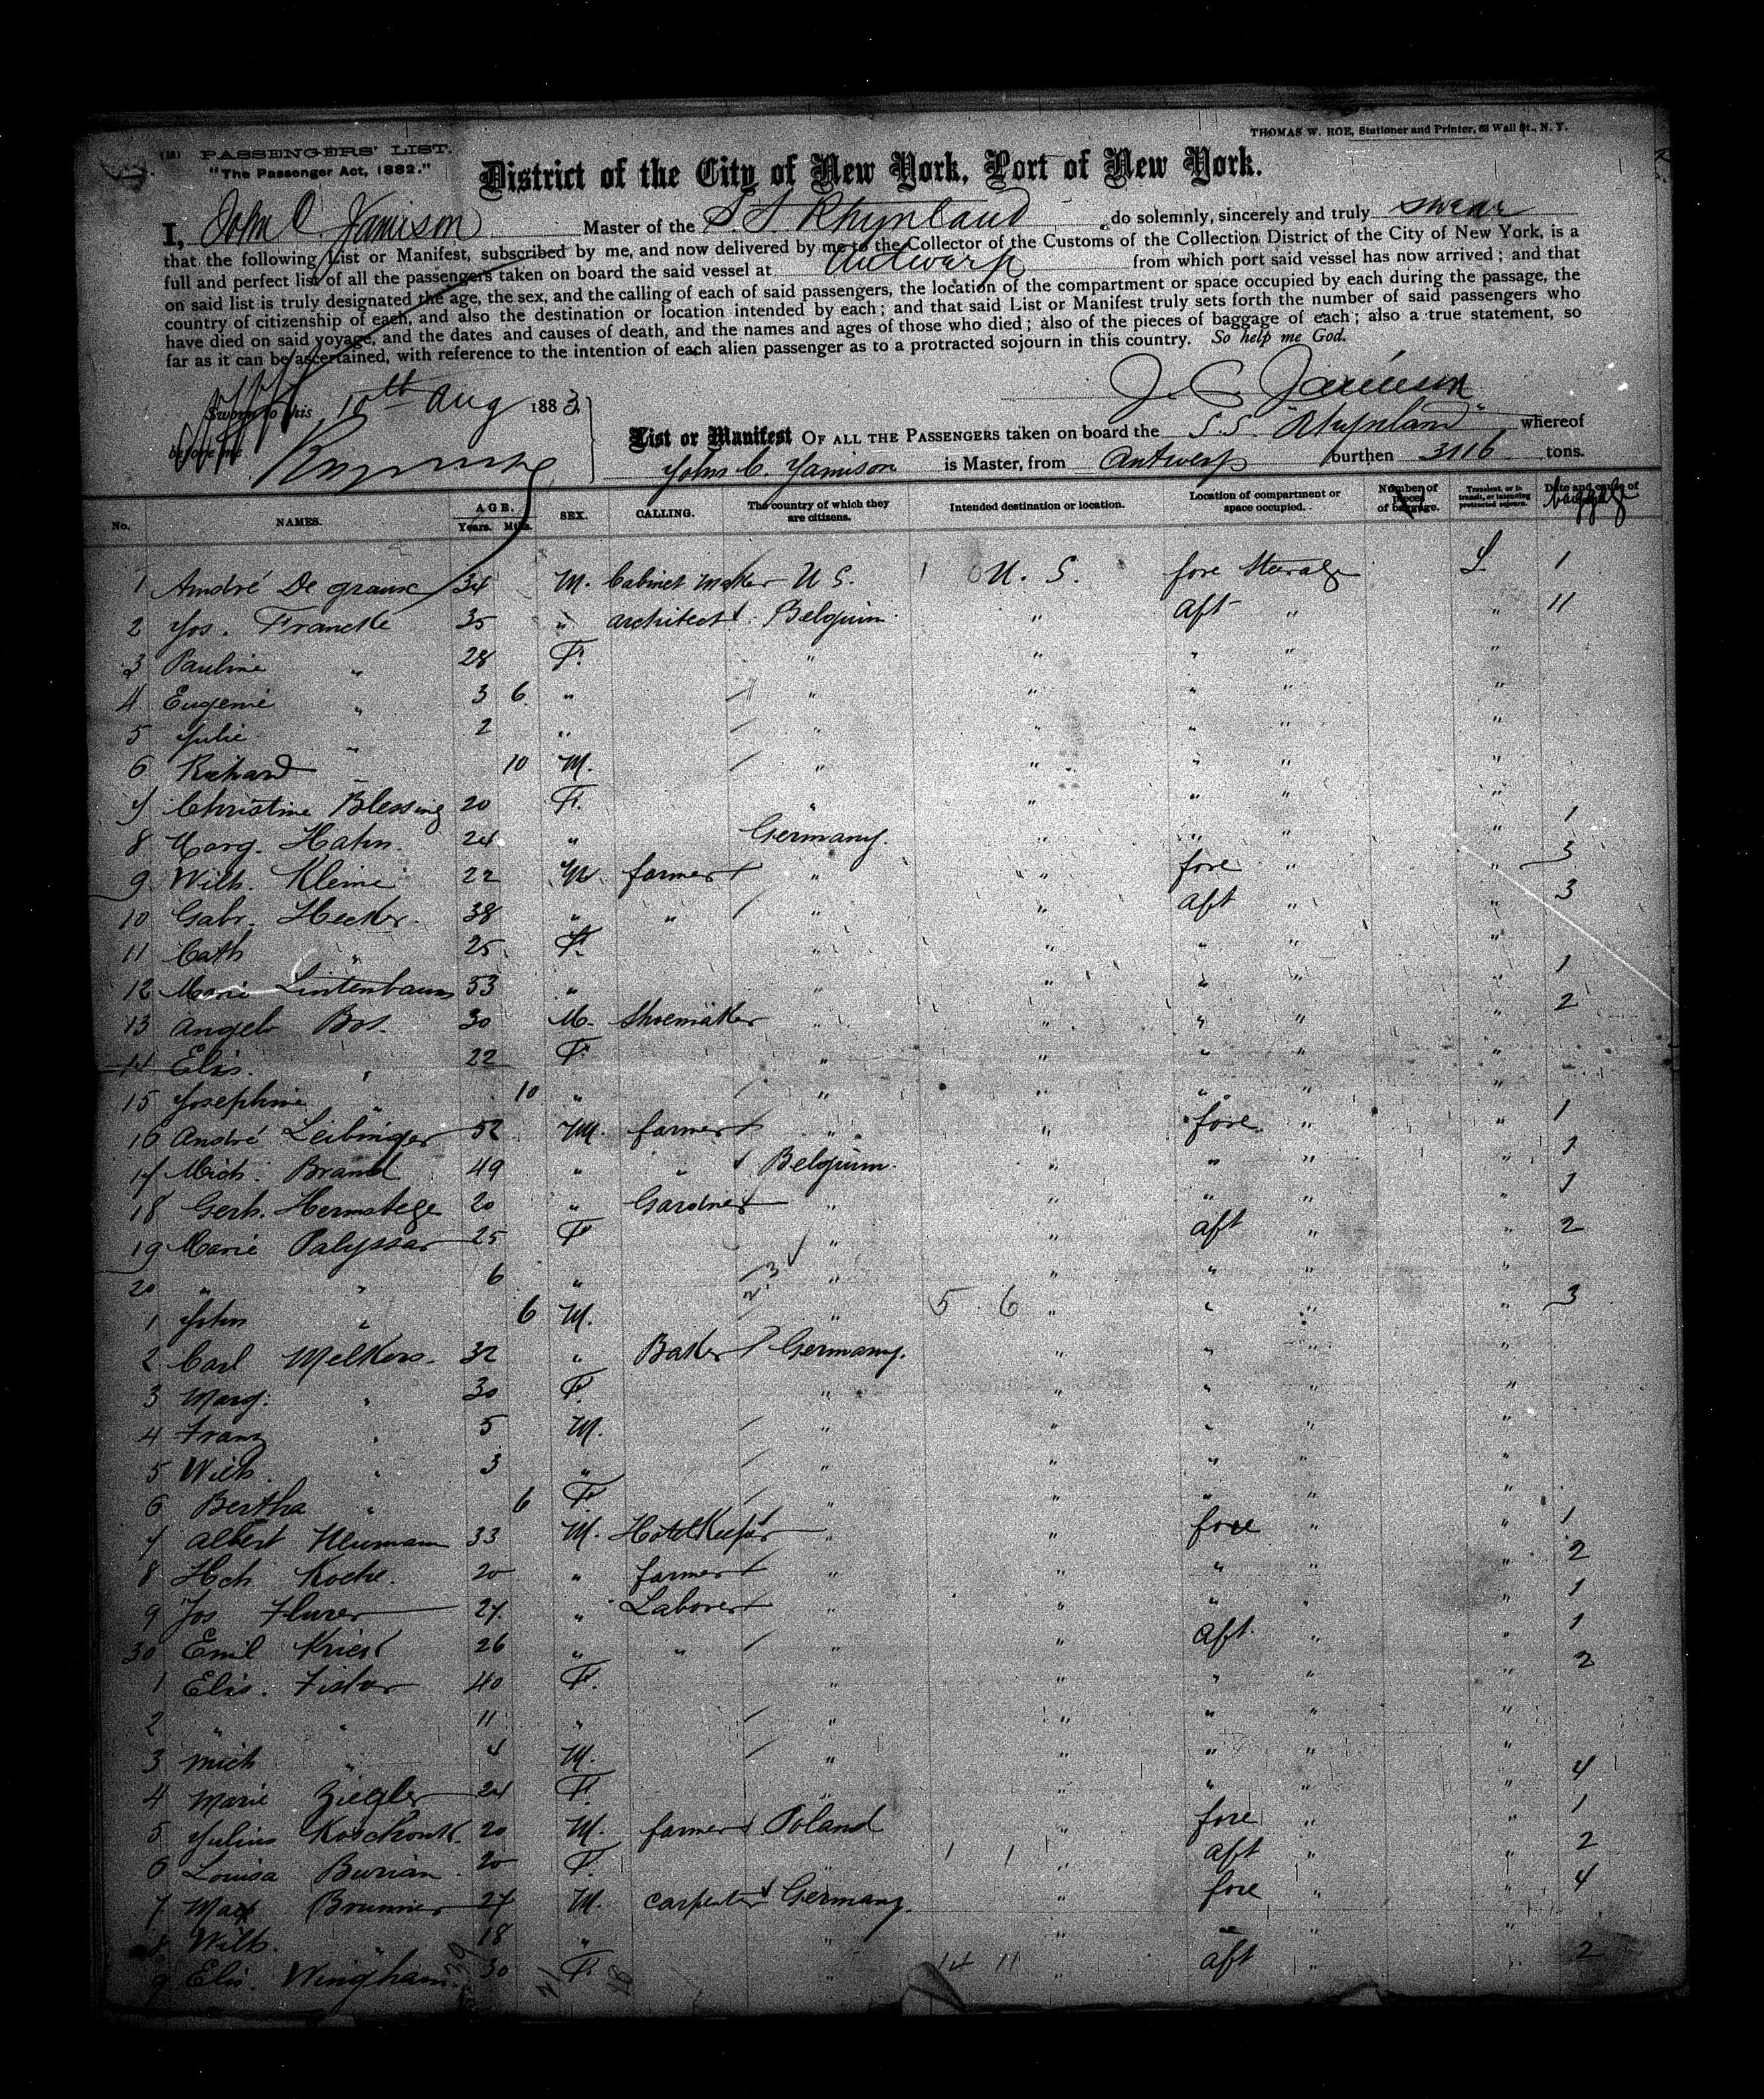 THOMAS W. ROE, Stationer and Printer, 63 Wall St., N. Y.
(18) PASSENGERS' LIST.
"The Passenger Act, 1882."
District of the City of New York, Port of New York.
I, John C. Jamison Master of the S. S. Rhynland do solemnly, sincerely and truly swear
that the following List or Manifest, subscribed by me, and now delivered by me to the Collector of the Customs of the Collection District of the City of New York, is a
full and perfect list of all the passengers taken on board the said vessel at Antwerp from which port said vessel has now arrived; and that
on said list is truly designated the age, the sex, and the calling of each of said passengers, the location of the compartment or space occupied by each during the passage, the
country of citizenship of each, and also the destination or location intended by each; and that said List or Manifest truly sets forth the number of said passengers who
have died on said voyage, and the dates and causes of death, and the names and ages of those who died; also of the pieces of baggage of each; also a true statement, so
far as it can be ascertained, with reference to the intention of each alien passenger as to a protracted sojourn in this country. So help me God.
Sworn to this 10th Aug 1883
before me
J. C. Jamison
List or Manifest OF ALL THE PASSENGERS taken on board the S.S. "Rhynland" whereof
John C. Jamison is Master, from Antwerp burthen 3116 tons.
No. NAMES. AGE. Years. Mths. SEX. CALLING. The country of which they are citizens. Intended destination or location. Location of compartment or space occupied. Number of pieces of baggage. Transient, or in transit, or intending protracted sojourn. Date and cause of baggage
1 André De graux 34 M. Cabinet Maker U S. U. S. fore Sterage 1
2 Jos. Francke 35 " architect Belgium " aft " " 11
3 Pauline " 28 F. " " " " "
4 Eugenie " 3 6 " " " " " "
5 Julie " 2 " " " " " "
6 Richard " 10 M. " " " " "
7 Christine Blessing 20 F. " " " " "
8 Marg. Hahn 24 " Germany. " " " " 1
9 Wilh. Kleine 22 M farmer " " fore " " 3
10 Gabr. Hecker 38 " " " " aft " " 3
11 Cath " 25 F. " " " " "
12 Marie Lintenbaum 53 " " " " " " 1
13 Angelo Bos. 30 M. Shoemaker " " " " " 2
14 Elis. " 22 F. " " " " "
15 Josephine " 10 " " " " " "
16 André Leibinger 52 M. farmer " " fore " " 1
17 Mich. Brand 49 " " Belgium " " " " 1
18 Gerh. Hermstege 20 " Gardner " " " " " 1
19 Marie Palyssar 25 F " " aft " " 2
20 " " 6 " " " " " "
1 John " 6 M. " " " " " 3
2 Carl Melkers 32 " Baker Germany. " " " "
3 Marg. " 30 F. " " " " "
4 Franz " 5 M. " " " " "
5 Wilh. " 3 " " " " " "
6 Bertha " 6 F. " " " " "
7 Albert Neumann 33 M. Hotel Keeper " " fore " " 1
8 Hch. Koche. 20 " farmer " " " " " 2
9 Jos Flurer 27 " Laborer " " " " " 1
30 Emil Kriest 26 " " " " aft " " 1
1 Elis. Fistor 40 F. " " " " " 2
2 " " 11 " " " " " "
3 Mich " 4 M. " " " " "
4 Marie Ziegler 24 F. " " " " " 4
5 Julius 20 M. farmer Poland " fore " " 1
6 Louisa Burian 20 F. " " aft " " 2
7 Max Brunnier 27 M. carpenter Germany. " fore " " 4
8 Wilh. " 18 " " " " " "
9 Elis. Wingham 30 F. " " aft " " 2